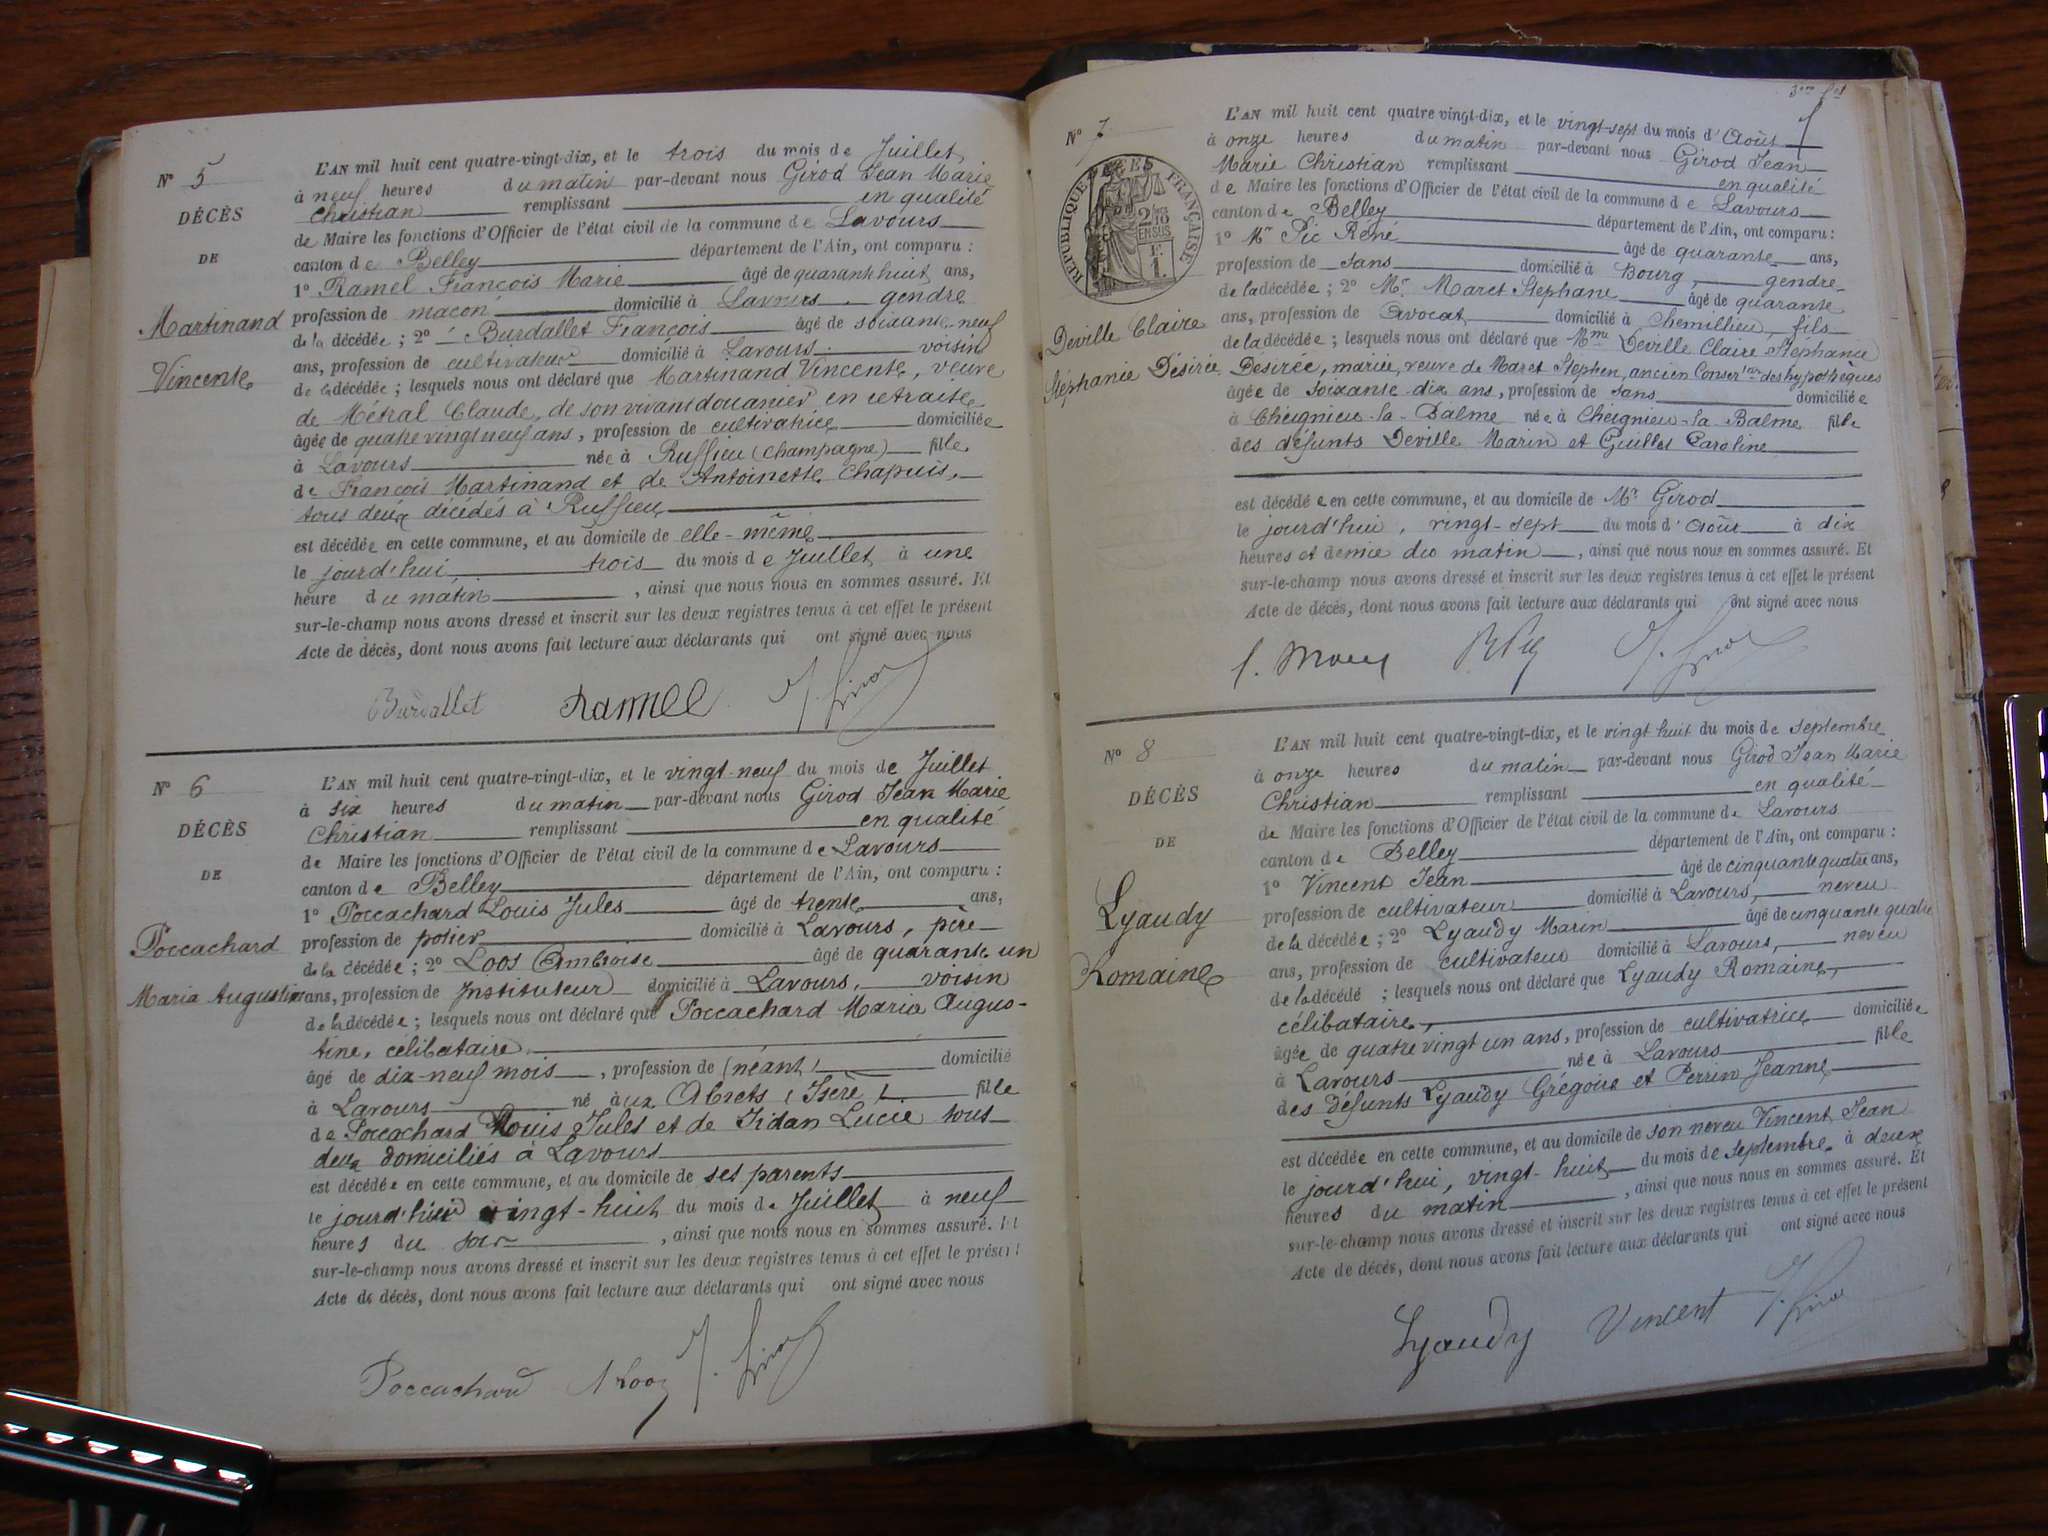 N° 5
DÉCÈS
DE
Martinand
Vincente
L'AN mil huit cent quatre-vingt-dix, et le trois du mois de Juillet
à neuf heures du matin par-devant nous Girod Jean Marie
Christian remplissant en qualité
de Maire les fonctions d'Officier de l'état civil de la commune de Lavours
canton de Belley département de l'Ain, ont comparu :
1° Ramel François Marie âgé de quarante huit ans,
profession de maçon domicilié à Lavours gendre
de la décédée ; 2° Burdallet François âgé de soixante-neuf
ans, profession de cultivateur domicilié à Lavours voisin
de la décédée ; lesquels nous ont déclaré que Martinand Vincente, veuve
de Métral Claude, de son vivant douanier en retraite
âgée de quatre vingt neuf ans, profession de cultivatrice domiciliée
à Lavours née à Ruffieu (Champagne) fille
de François Martinand et de Antoinette Chapuis,
tous deux décédés à Ruffieu
est décédée en cette commune, et au domicile de elle-même
le jourd'hui trois du mois de Juillet à une
heure du matin , ainsi que nous nous en sommes assuré. Et
sur-le-champ nous avons dressé et inscrit sur les deux registres tenus à cet effet le présent
Acte de décès, dont nous avons fait lecture aux déclarants qui ont signé avec nous
Burdallet Ramel J. Girod
N° 6
DÉCÈS
DE
Poccachard
Maria Augustine
L'AN mil huit cent quatre-vingt-dix, et le vingt-neuf du mois de Juillet
à six heures du matin par-devant nous Girod Jean Marie
Christian remplissant en qualité
de Maire les fonctions d'Officier de l'état civil de la commune de Lavours
canton de Belley département de l'Ain, ont comparu :
1° Poccachard Louis Jules âgé de trente ans,
profession de potier domicilié à Lavours, père
de la décédée ; 2° Loos Ambroise âgé de quarante un
ans, profession de Instituteur domicilié à Lavours, voisin
de la décédée ; lesquels nous ont déclaré que Poccachard Maria Augus-
tine, célibataire
âgé de dix-neuf mois , profession de (néant) domicilié
à Lavours né aux Abrets (Isère) fille
de Poccachard Louis Jules et de Lucie tous
deux domiciliés à Lavours
est décédée en cette commune, et au domicile de ses parents
le jourd'hier vingt-huit du mois de Juillet à neuf
heures du soir , ainsi que nous nous en sommes assuré. Et
sur-le-champ nous avons dressé et inscrit sur les deux registres tenus à cet effet le présent
Acte de décès, dont nous avons fait lecture aux déclarants qui ont signé avec nous
Poccachard A Loos J. Girod
N° 7
RÉPUBLIQUE FRANÇAISE
2/10
EN SUS
1 F.
Deville Claire
Stéphanie Désirée
L'AN mil huit cent quatre-vingt-dix, et le vingt-sept du mois d'Août
à onze heures du matin par-devant nous Girod Jean
Marie Christian remplissant en qualité
de Maire les fonctions d'Officier de l'état civil de la commune de Lavours
canton de Belley département de l'Ain, ont comparu :
1° Mr Pic René âgé de quarante ans,
profession de sans domicilié à Bourg, gendre
de la décédée ; 2° Mr. Maret Stéphane âgé de quarante
ans, profession de Avocat domicilié à Chemillieu, fils
de la décédée ; lesquels nous ont déclaré que Mme Deville Claire Stéphanie
Désirée, mariée, veuve de Maret Stephen, ancien Conservteur des hypothèques
âgée de soixante dix ans, profession de sans domiciliée
à Cheignieu-la-Balme née à Cheignieu-la-Balme fille
des défunts Deville Marin et Guillet Caroline
est décédée en cette commune, et au domicile de Mr Girod
le jourd'hui, vingt-sept du mois d'Août à dix
heures et demie du matin , ainsi que nous nous en sommes assuré. Et
sur-le-champ nous avons dressé et inscrit sur les deux registres tenus à cet effet le présent
Acte de décès, dont nous avons fait lecture aux déclarants qui ont signé avec nous
R Pic J. Girod
N° 8
DÉCÈS
DE
Lyaudy
Romaine
L'AN mil huit cent quatre-vingt-dix, et le vingt huit du mois de septembre
à onze heures du matin par-devant nous Girod Jean Marie
Christian remplissant en qualité
de Maire les fonctions d'Officier de l'état civil de la commune de Lavours
canton de Belley département de l'Ain, ont comparu :
1° Vincent Jean âgé de cinquante quatre ans,
profession de cultivateur domicilié à Lavours, neveu
de la décédée ; 2° Lyaudy Marin âgé de cinquante quatre
ans, profession de cultivateur domicilié à Lavours, neveu
de la décédé ; lesquels nous ont déclaré que Lyaudy Romaine,
célibataire,
âgée de quatre vingt un ans, profession de cultivatrice domiciliée
à Lavours née à Lavours fille
des défunts Lyaudy Grégoire et Perrin Jeanne
est décédée en cette commune, et au domicile de son neveu Vincent Jean
le jourd'hui, vingt-huit du mois de septembre, à deux
heures du matin , ainsi que nous nous en sommes assuré. Et
sur-le-champ nous avons dressé et inscrit sur les deux registres tenus à cet effet le présent
Acte de décès, dont nous avons fait lecture aux déclarants qui ont signé avec nous
Lyaudy Vincent J. Girod